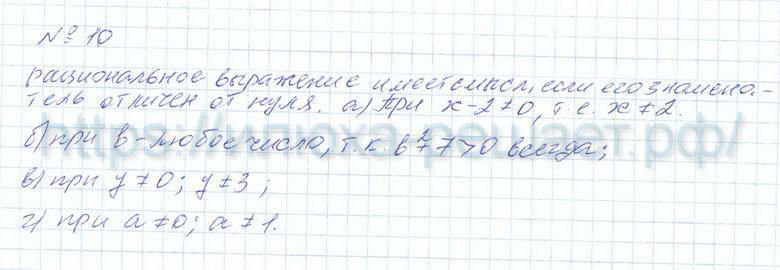 № 10
рациональное выражение имеет смысл, если его знамена-
тель отличен от нуля. а) При x-2≠0, т.е. x≠2.
б) при b-любое число, т.к. b²+7>0 всегда;
в) при y≠0; y≠3;
г) при a≠0; a≠1.
https://илюха-решает.рф/